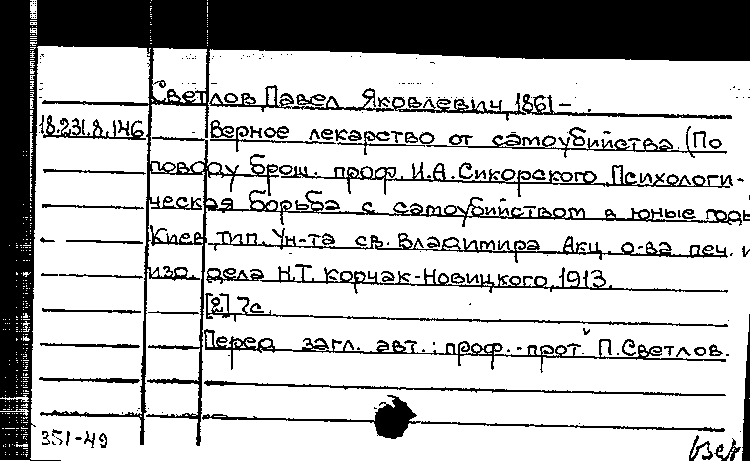 Светлов, Павел Яковлевич, 1861- .
18.231.8.146 Верное лекарство от самоубийства. (По
поводу брош. проф. И.А.Сикорского „Психологи-
ческая борьба с самоубийством в юные годы
Киев, тип. Ун-та св. Владимира Акц. о-ва печ. и
изд. дела Н.Т. Корчак-Новицкого, 1913.
[2], 7с.
Перед загл. авт.: проф.-прот. П.Светлов.
351-49